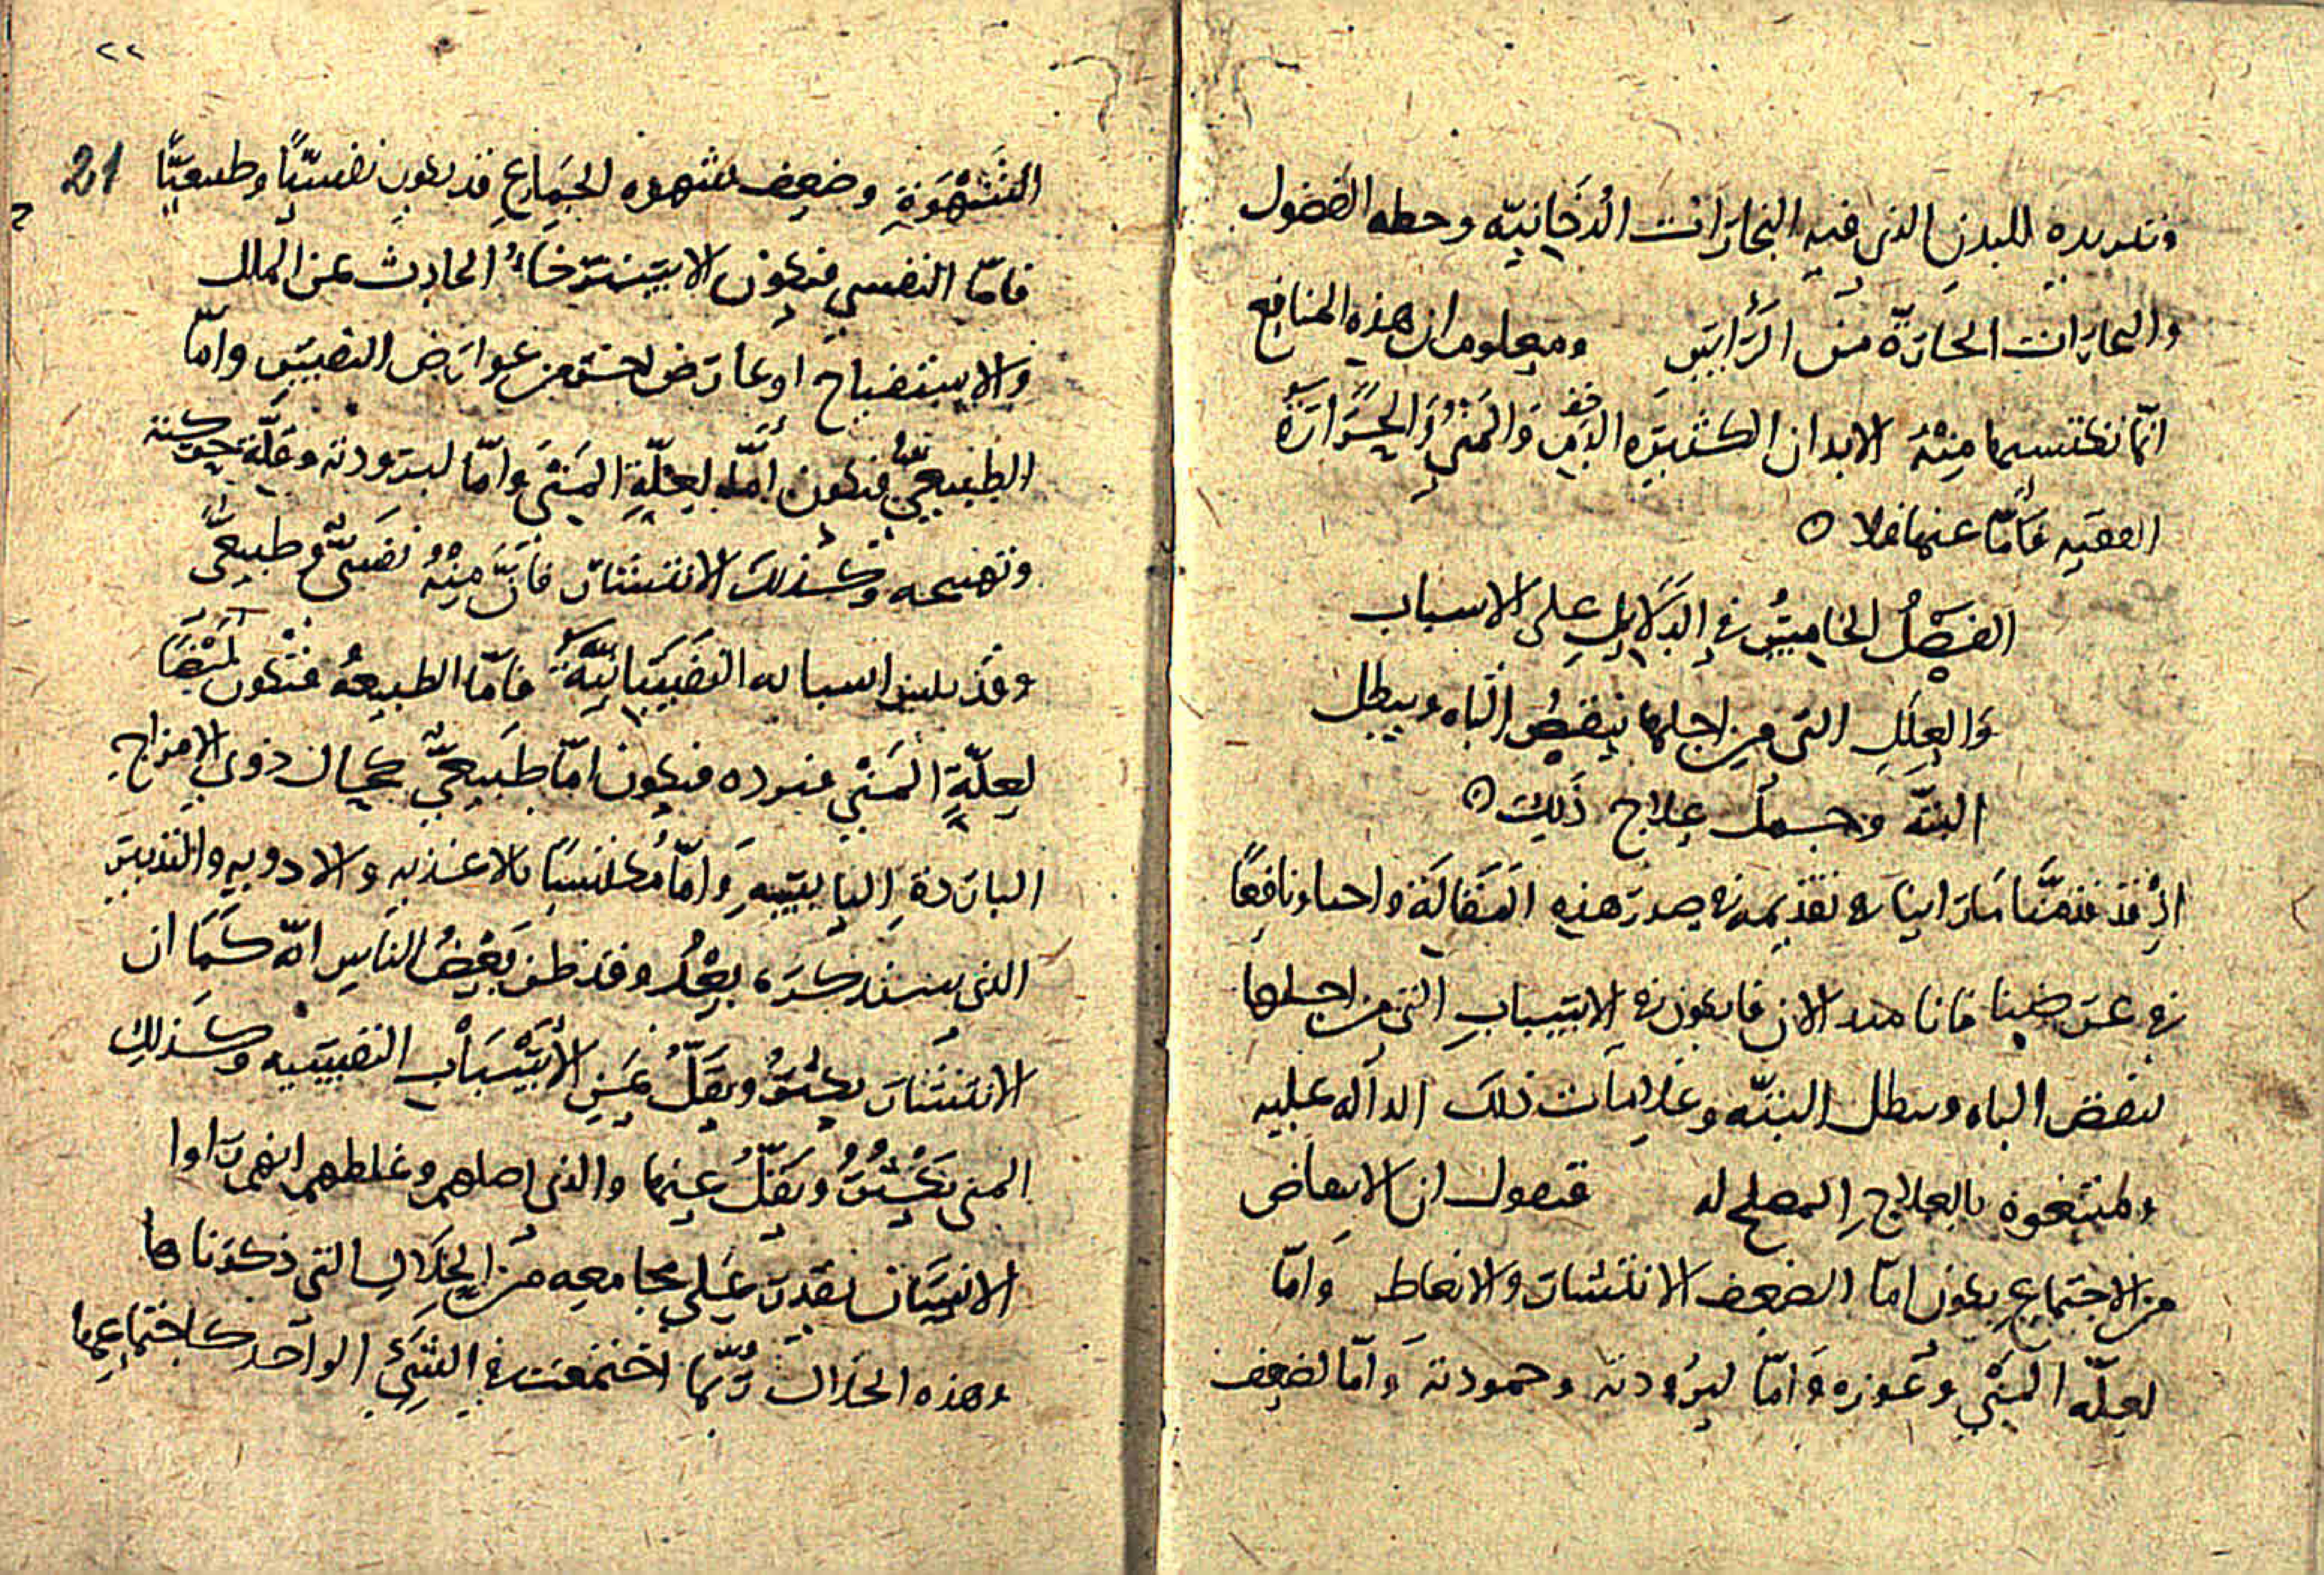 وتبريده للبدن الذى فيه البخارات الدخانيه وحطه الفضول
والبخارات الحارّة من الرأس ومعلوم ان هذه المنافع
انما تكتسبها مِنْهُ الابدان الكثيره الدم والمَنيّ والحَرَارَة
القويه فامّا عنها فلا ه
الفصلُ الخامِسُ فى الدَلايلِ على الاسباب
وَالعِلَلِ التى من اجلها ينقصُ الباه ويبطل
البتّه وجمل علاج ذَلِكَ ه
اذْ قد قدمَّنا مَا راينا فى تقديمه فى صدر هذه المَقَالَة واجبا ونافِعًا
فى غرضنا فانا الان قايلون فى الاسبابِ التى من اجلها
ينقص الباه ويبطل البتّه وعَلامَات ذلك الدآله عليه
ونتبعه بالعلاجِ المصلح له فنقول ان الامعاض
من الاجتماعِ يكون امّا لضعف الانتشار والانعاظ وَامّا
لعلّه المَنْي وعوزه وَامّا لبرُودته وجمودته وَامّا لضعف
٢٢
21
الشَهْوَةِ وضعف شهوه الجِمَاعِ قد يكون نفسيّاً وطبيعيّاً
فامّا النفسى فيكون الاسترخاءُ الحادث عن الملل
وَالاستقباح او عارض اخر من عوارض النفسِ وامّا
الطبيعىّ فيكون امّا لعلّةِ المَنْي وامّا لبرودته وقلّة حركته
وتهيجه وكذلك الانتشار فانَّ مِنْهُ نفسىّ وطبيعىّ
وقد اسبابه النفسَانيّة فامّا الطبيعهُ فتكون ايْضًا
لعلّةِ المَنْي وبرده فيكون امّا طَبيعىّ كحال ذوى الامزاجِ
الباردة اليابسهِ وَامّا مُكتسبًا بالاغذيه وَالادويه والتدبير
الذى سنذكره بعْدُ وقد ظن بَعْضُ النَاسِ انّه كَمَا ان
الانتشار يكثرُ ويَقَلُّ عَنِ الأسْبَابِ النفسيه وَكذلك
المنى يَكْثُرُ ويَقلُّ عنها والذى اضلهم وغلطهم انهم رَاوا
الانسَان يقدر عَلى مجامعه مَن الخلال التى ذكرناها
وهذه الخلال رُبّما اجتمعت فى الشىءِ الواحد كاجتماعِها